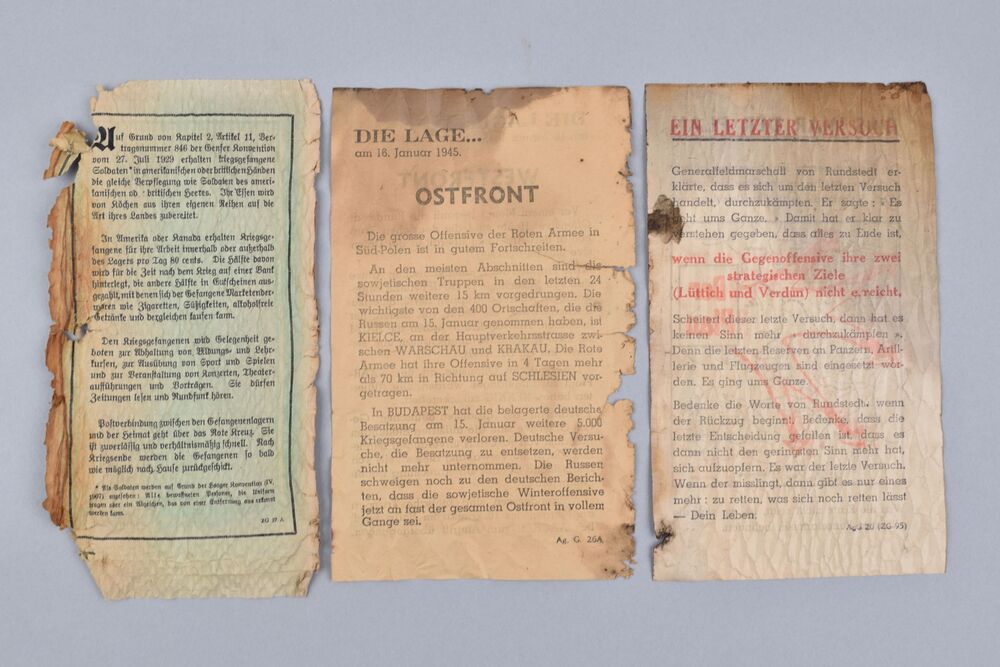 Auf Grund von Kapitel 2, Artikel 11, Ver-
tragsnummer 846 der Genfer Konvention
vom 27. Juli 1929 erhalten kriegsgefangene
Soldaten* in amerikanischen oder britischen Händen
die gleiche Verpflegung wie Soldaten des ameri-
kanischen od britischen Heeres. Ihr Essen wird
von Köchen aus ihren eigenen Reihen auf die
Art ihres Landes zubereitet.
In Amerika oder Kanada erhalten Kriegsge-
fangene für ihre Arbeit innerhalb oder außerhalb
des Lagers pro Tag 80 cents. Die Hälfte davon
wird für die Zeit nach dem Krieg auf einer Bank
hinterlegt, die andere Hälfte in Gutscheinen aus-
gezahlt, mit denen sich der Gefangene Marketender-
waren wie Zigaretten, Süßigkeiten, alkoholfreie
Getränke und dergleichen kaufen kann.
Den Kriegsgefangenen wird Gelegenheit ge-
boten zur Abhaltung von Bildungs- und Lehr-
kursen, zur Ausübung von Sport und Spielen
und zur Veranstaltung von Konzerten, Theater-
aufführungen und Vorträgen. Sie dürfen
Zeitungen lesen und Rundfunk hören.
Postverbindung zwischen den Gefangenenlagern
und der Heimat geht über das Rote Kreuz. Sie
ist zuverlässig und verhältnismäßig schnell. Nach
Kriegsende werden die Gefangenen so bald
wie möglich nach Hause zurückgeschickt.
* Als Soldaten werden auf Grund der Haager Konvention (IV,
1907) angesehen: Alle bewaffneten Personen, die Uniform
tragen oder ein Abzeichen, das von einer Entfernung aus erkannt
werden kann.
ZG 37 A
DIE LAGE...
am 16. Januar 1945.
OSTFRONT
Die grosse Offensive der Roten Armee in
Süd-Polen ist in gutem Fortschreiten.
An den meisten Abschnitten sind die
sowjetischen Truppen in den letzten 24
Stunden weitere 15 km vorgedrungen. Die
wichtigste von den 400 Ortschaften, die die
Russen am 15. Januar genommen haben, ist
KIELCE, an der Hauptverkehrsstrasse zwi-
schen WARSCHAU und KRAKAU. Die Rote
Armee hat ihre Offensive in 4 Tagen mehr
als 70 km in Richtung auf SCHLESIEN vor-
getragen.
In BUDAPEST hat die belagerte deutsche
Besatzung am 15. Januar weitere 5.000
Kriegsgefangene verloren. Deutsche Versu-
che, die Besatzung zu entsetzen, werden
nicht mehr unternommen. Die Russen
schweigen noch zu den deutschen Berich-
ten, dass die sowjetische Winteroffensive
jetzt an fast der gesamten Ostfront in vollem
Gange sei.
Ag. G. 26A
EIN LETZTER VERSUCH
Generalfeldmarschall von Rundstedt er-
klärte, dass es sich um den letzten Versuch
handelt, durchzukämpfen. Er sagte: « Es
geht ums Ganze. » Damit hat er klar zu
verstehen gegeben, dass alles zu Ende ist,
wenn die Gegenoffensive ihre zwei
strategischen Ziele
(Lüttich und Verdun) nicht erreicht.
Scheitert dieser letzte Versuch, dann hat es
keinen Sinn mehr « durchzukämpfen ».
Denn die letzten Reserven an Panzern, Artil-
lerie und Flugzeugen sind eingesetzt wor-
den. Es ging ums Ganze.
Bedenke die Worte von Rundstedt, wenn
der Rückzug beginnt! Bedenke, dass die
letzte Entscheidung gefallen ist, dass es
dann nicht den geringsten Sinn mehr hat,
sich aufzuopfern. Es war der letzte Versuch.
Wenn der misslingt, dann gibt es nur eines
mehr : zu retten, was sich noch retten lässt
— Dein Leben.
AgG 20 (ZG 95)